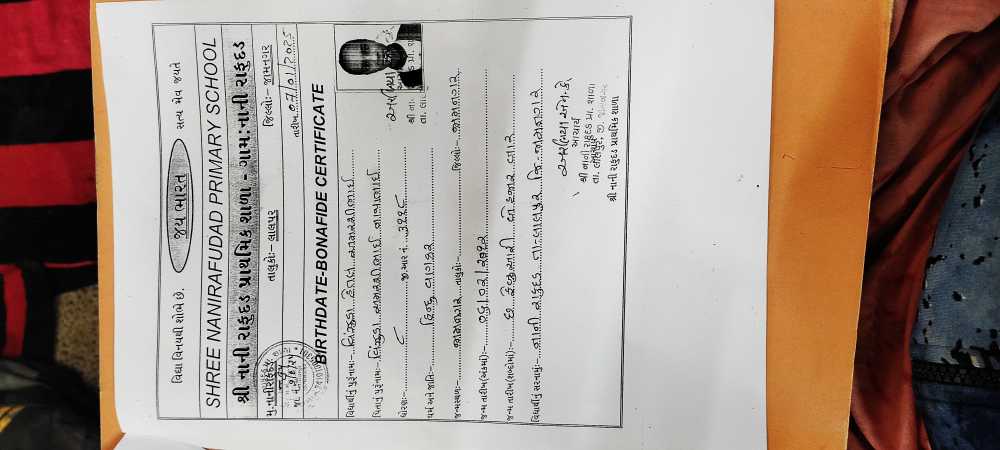 વિદ્યા વિનયથી શોભે છે. જય ભારત સત્ય મેવ જયતે
SHREE NANIRAFUDAD PRIMARY SCHOOL
શ્રી નાની રાફુદડ પ્રાથમિક શાળા - ગામ:નાની રાફુદડ
મુ.નાનીરાફુદડ તાલુકો:- લાલપુર જિલ્લો:- જામનગર
તારીખ.07/01/2025
BIRTHDATE-BONAFIDE CERTIFICATE
વિદ્યાર્થીનું પુરુંનામ:-
પિતાનું પુરુંનામ:-
ધોરણ:- ૮ જી.આર નં. ૩૧૧૮
ધર્મ અને જાતિ:- હિન્દુ
જન્મસ્થળ:- જામનગર તાલુકો:- જિલ્લો:- જામનગર
જન્મ તારીખ(અંકમાં):- ૦૬/૦૨/૨૦૧૨
જન્મ તારીખ(શબ્દોમાં):- છ ફેબ્રુઆરી બે હજાર બાર
વિદ્યાર્થીનું સરનામું:- નાની રાફુદડ તા-લાલપુર જિ-જામનગર
આચાર્ય
શ્રી નાની રાફુદડ પ્રા. શાળા
તા. લાલપુર, જી. જામનગર
શ્રી નાની રાફુદડ પ્રાથમિક શાળા